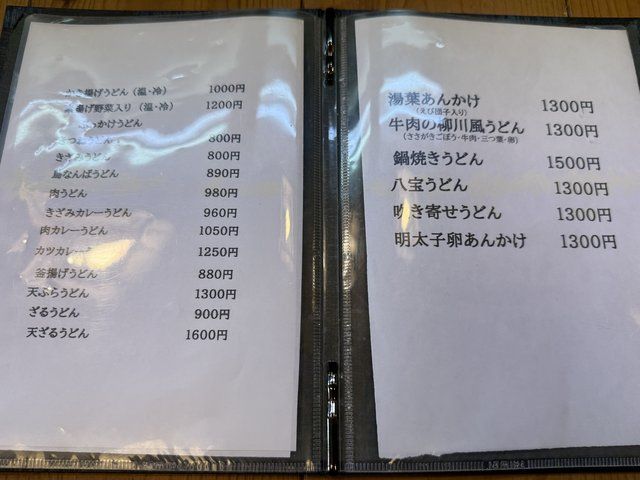 き揚げうどん（温・冷） 1000円
揚げ野菜入り（温・冷） 1200円
かけうどん
うどん 800円
きざみうどん 800円
鳥なんばうどん 890円
肉うどん 980円
きざみカレーうどん 960円
肉カレーうどん 1050円
カツカレー 1250円
釜揚げうどん 880円
天ぷらうどん 1300円
ざるうどん 900円
天ざるうどん 1600円
湯葉あんかけ 1300円
（えび団子入り）
牛肉の柳川風うどん 1300円
（ささがきごぼう・牛肉・三つ葉・卵）
鍋焼きうどん 1500円
八宝うどん 1300円
吹き寄せうどん 1300円
明太子卵あんかけ 1300円